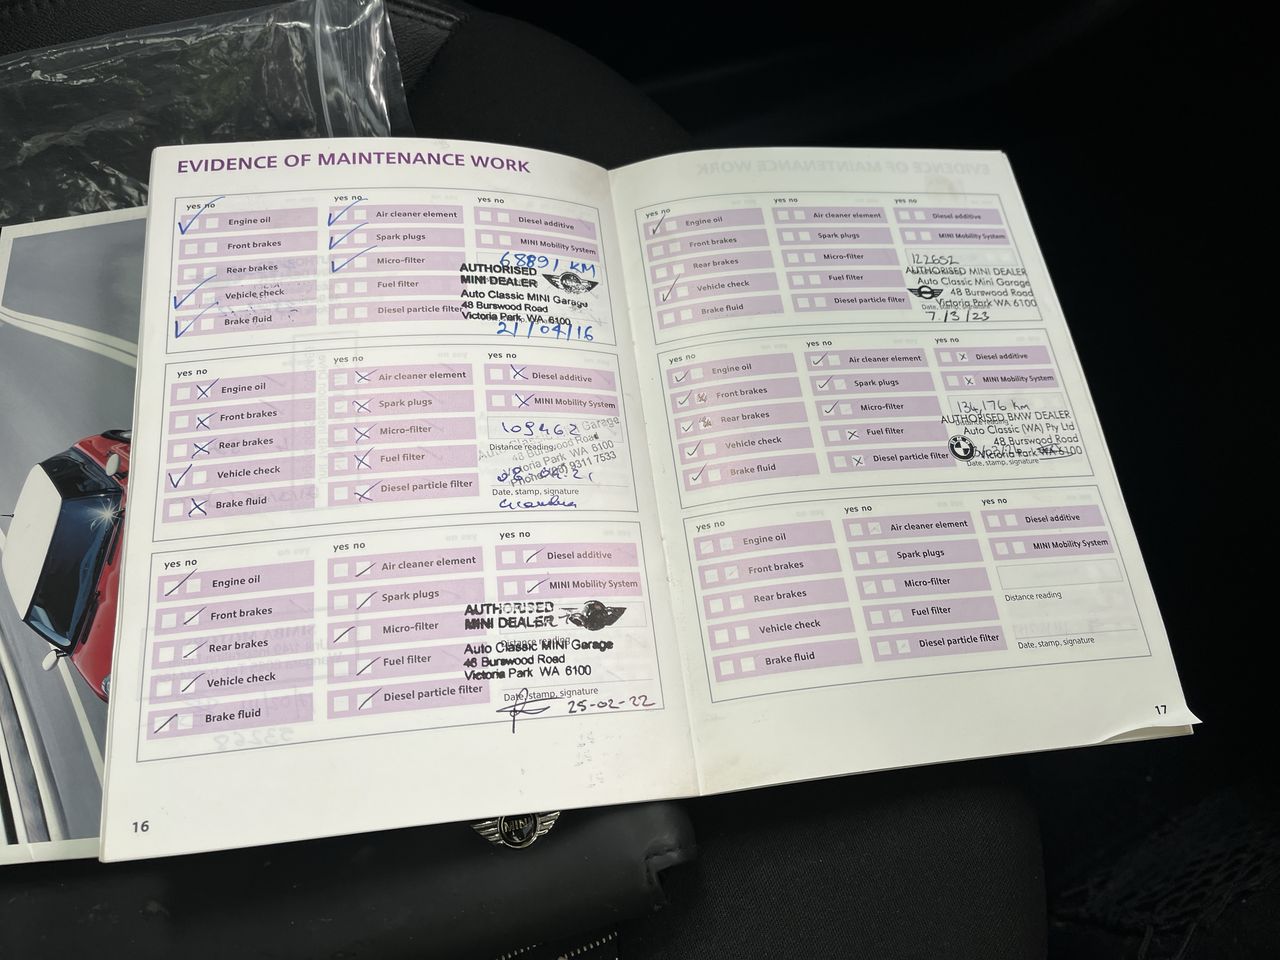 EVIDENCE OF MAINTENANCE WORK
yes no
Engine oil
Front brakes
Rear brakes
Vehicle check
Brake fluid
yes no
Air cleaner element
Spark plugs
Micro-filter
Fuel filter
Diesel particle filter
yes no
Diesel additive
MINI Mobility System
68891 KM
AUTHORISED
MINI DEALER
Auto Classic MINI Garage
48 Burswood Road
Victoria Park WA 6100
21/04/16
yes no
Engine oil
Front brakes
Rear brakes
Vehicle check
Brake fluid
yes no
Air cleaner element
Spark plugs
Micro-filter
Fuel filter
Diesel particle filter
yes no
Diesel additive
MINI Mobility System
109462
Garage
Distance reading,
Burswood Road
Victoria Park WA 6100
Phone 9311 7533
Date, stamp, signature
yes no
Engine oil
Front brakes
Rear brakes
Vehicle check
Brake fluid
yes no
Air cleaner element
Spark plugs
Micro-filter
Fuel filter
Diesel particle filter
yes no
Diesel additive
MINI Mobility System
AUTHORISED
MINI DEALER
Distance reading
Auto Classic MINI Garage
48 Burswood Road
Victoria Park WA 6100
Date, stamp, signature
25-02-22
16
yes no
Engine oil
Front brakes
Rear brakes
Vehicle check
Brake fluid
yes no
Air cleaner element
Spark plugs
Micro-filter
Fuel filter
Diesel particle filter
yes no
Diesel additive
MINI Mobility System
122652
AUTHORISED MINI DEALER
Auto Classic Mini Garage
48 Burswood Road
Victoria Park WA 6100
7/3/23
yes no
Engine oil
Front brakes
Rear brakes
Vehicle check
Brake fluid
yes no
Air cleaner element
Spark plugs
Micro-filter
Fuel filter
Diesel particle filter
yes no
Diesel additive
MINI Mobility System
134,176 km
AUTHORISED BMW DEALER
Auto Classic (WA) Pty Ltd
48 Burswood Road
Victoria Park WA 6100
Date, stamp, signature
yes no
Engine oil
Front brakes
Rear brakes
Vehicle check
Brake fluid
yes no
Air cleaner element
Spark plugs
Micro-filter
Fuel filter
Diesel particle filter
yes no
Diesel additive
MINI Mobility System
Distance reading
Date, stamp, signature
17
MINI